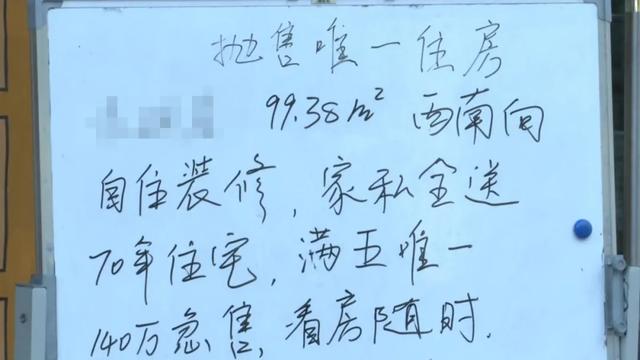 抛售唯一住房
99.38m² 西南向
自住装修,家私全送
70年住宅,满五唯一
140万急售,看房随时.